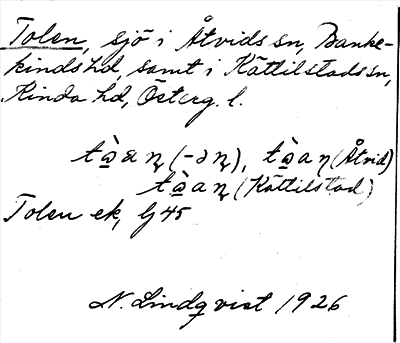 Tolen, sjö i Åtvids sn, Banke-
kinds hd, samt i Kättilstads sn,
Kinda hd, Österg. l.
(Åtvid)
(Kättilstad)
Tolen ek, Gj 45
N. Lindqvist 1926